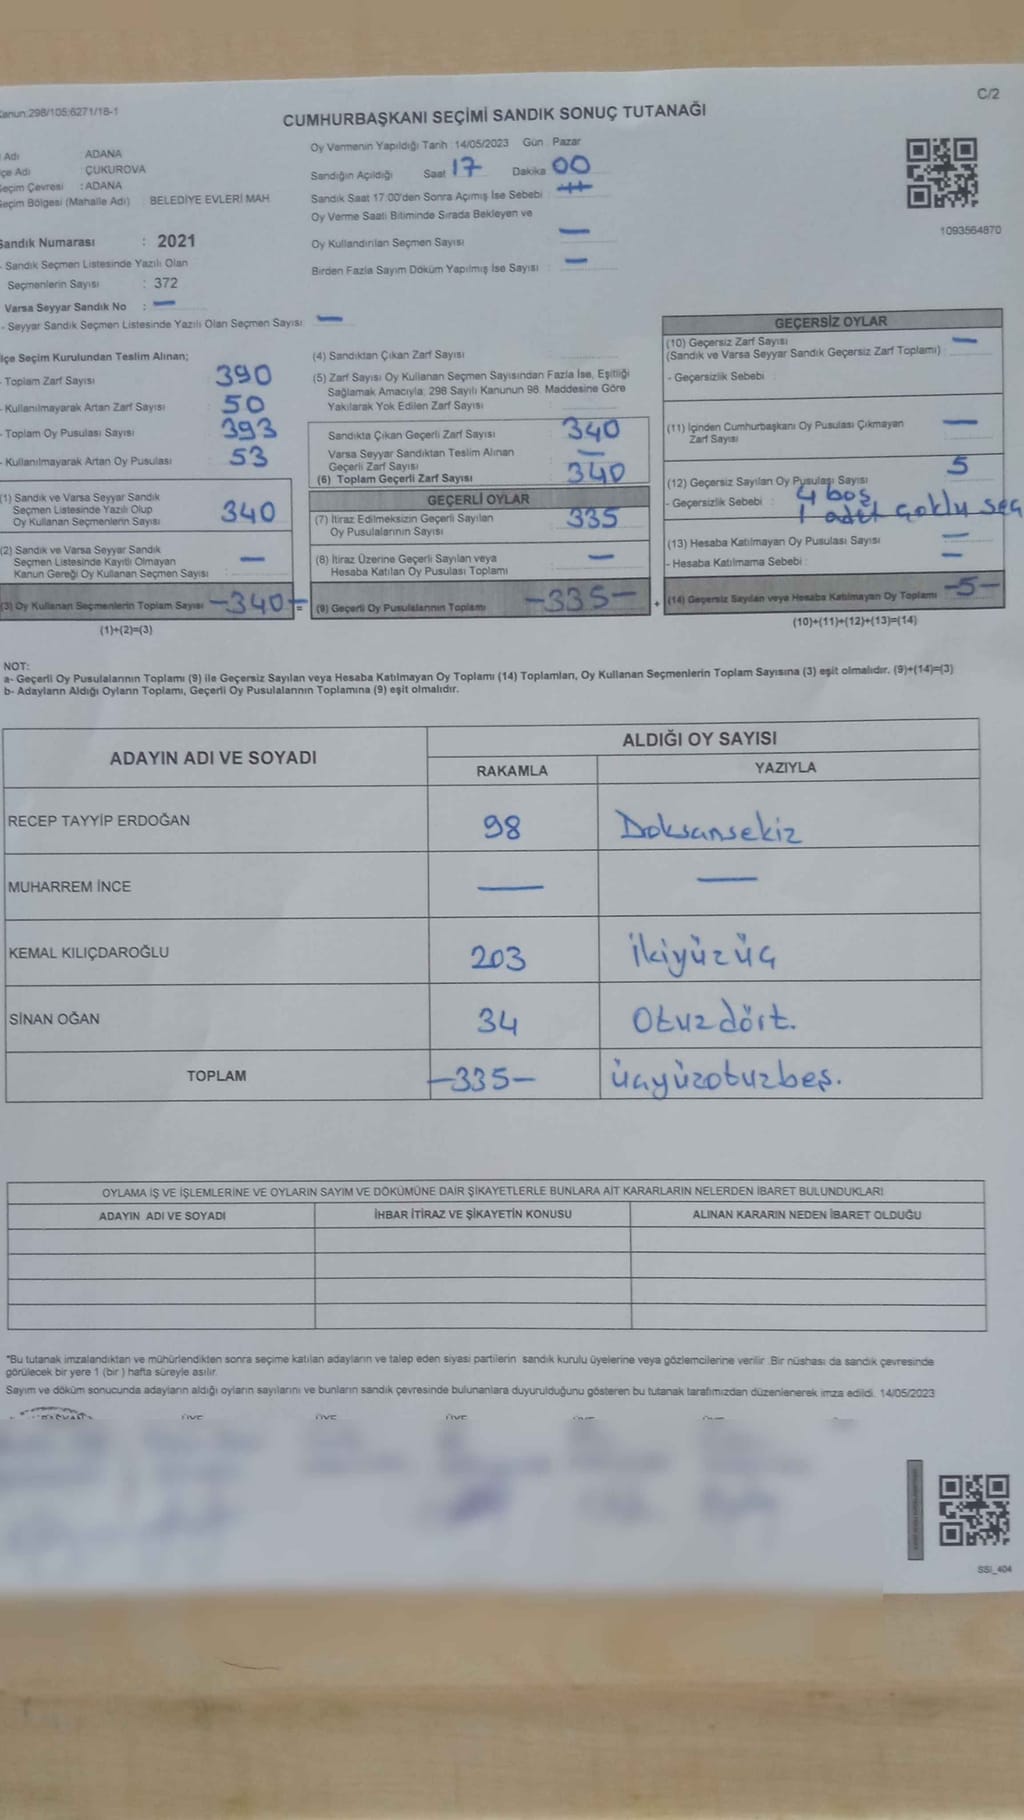 Kanun:298/105;6271/18-1
C/2
CUMHURBAŞKANI SEÇİMİ SANDIK SONUÇ TUTANAĞI
Adı ADANA
çe Adı ÇUKUROVA
Seçim Çevresi : ADANA
Seçim Bölgesi (Mahalle Adı) BELEDİYE EVLERİ MAH
Sandık Numarası : 2021
- Sandık Seçmen Listesinde Yazılı Olan
Seçmenlerin Sayısı : 372
Varsa Seyyar Sandık No : —
- Seyyar Sandık Seçmen Listesinde Yazılı Olan Seçmen Sayısı —
Oy Vermenin Yapıldığı Tarih : 14/05/2023 Gün : Pazar
Sandığın Açıldığı Saat 17 Dakika 00
Sandık Saat 17:00'den Sonra Açımış İse Sebebi
Oy Verme Saati Bitiminde Sırada Bekleyen ve
Oy Kullandırılan Seçmen Sayısı —
Birden Fazla Sayım Döküm Yapılmış İse Sayısı : —
1093564870
lçe Seçim Kurulundan Teslim Alınan;
- Toplam Zarf Sayısı 390
- Kullanılmayarak Artan Zarf Sayısı 50
- Toplam Oy Pusulası Sayısı 393
- Kullanılmayarak Artan Oy Pusulası 53
(1) Sandık ve Varsa Seyyar Sandık
Seçmen Listesinde Yazılı Olup
Oy Kullanan Seçmenlerin Sayısı 340
(2) Sandık ve Varsa Seyyar Sandık
Seçmen Listesinde Kayıtlı Olmayan
Kanun Gereği Oy Kullanan Seçmen Sayısı —
(3) Oy Kullanan Seçmenlerin Toplam Sayısı -340-
(1)+(2)=(3)
(4) Sandıktan Çıkan Zarf Sayısı
(5) Zarf Sayısı Oy Kullanan Seçmen Sayısından Fazla İse, Eşitliği
Sağlamak Amacıyla; 298 Sayılı Kanunun 98. Maddesine Göre
Yakılarak Yok Edilen Zarf Sayısı
Sandıkta Çıkan Geçerli Zarf Sayısı 340
Varsa Seyyar Sandıktan Teslim Alınan
Geçerli Zarf Sayısı —
(6) Toplam Geçerli Zarf Sayısı 340
GEÇERLİ OYLAR
(7) İtiraz Edilmeksizin Geçerli Sayılan
Oy Pusulalarının Sayısı 335
(8) İtiraz Üzerine Geçerli Sayılan veya
Hesaba Katılan Oy Pusulası Toplamı —
= (9) Geçerli Oy Pusulalarının Toplamı -335-
GEÇERSİZ OYLAR
(10) Geçersiz Zarf Sayısı —
(Sandık ve Varsa Seyyar Sandık Geçersiz Zarf Toplamı)
- Geçersizlik Sebebi
(11) İçinden Cumhurbaşkanı Oy Pusulası Çıkmayan
Zarf Sayısı —
(12) Geçersiz Sayılan Oy Pusulası Sayısı 5
- Geçersizlik Sebebi : 4 boş
1 adet çoklu seç
(13) Hesaba Katılmayan Oy Pusulası Sayısı —
- Hesaba Katılmama Sebebi : —
+ (14) Geçersiz Sayılan veya Hesaba Katılmayan Oy Toplamı -5-
(10)+(11)+(12)+(13)=(14)
NOT:
a- Geçerli Oy Pusulalarının Toplamı (9) ile Geçersiz Sayılan veya Hesaba Katılmayan Oy Toplamı (14) Toplamları, Oy Kullanan Seçmenlerin Toplam Sayısına (3) eşit olmalıdır. (9)+(14)=(3)
b- Adayların Aldığı Oyların Toplamı, Geçerli Oy Pusulalarının Toplamına (9) eşit olmalıdır.
ADAYIN ADI VE SOYADI
ALDIĞI OY SAYISI
RAKAMLA YAZIYLA
RECEP TAYYİP ERDOĞAN 98 Doksansekiz
MUHARREM İNCE — —
KEMAL KILIÇDAROĞLU 203 İkiyüzüç
SİNAN OĞAN 34 Otuzdört.
TOPLAM -335- üçyüzotuzbeş.
OYLAMA İŞ VE İŞLEMLERİNE VE OYLARIN SAYIM VE DÖKÜMÜNE DAİR ŞİKAYETLERLE BUNLARA AİT KARARLARIN NELERDEN İBARET BULUNDUKLARI
ADAYIN ADI VE SOYADI İHBAR İTİRAZ VE ŞİKAYETİN KONUSU ALINAN KARARIN NEDEN İBARET OLDUĞU
*Bu tutanak imzalandıktan ve mühürlendikten sonra seçime katılan adayların ve talep eden siyasi partilerin sandık kurulu üyelerine veya gözlemcilerine verilir. Bir nüshası da sandık çevresinde
görülecek bir yere 1 (bir) hafta süreyle asılır.
Sayım ve döküm sonucunda adayların aldığı oyların sayılarını ve bunların sandık çevresinde bulunanlara duyurulduğunu gösteren bu tutanak tarafımızdan düzenlenerek imza edildi. 14/05/2023
ÜYE ÜYE ÜYE ÜYE ÜYE
SSI_404